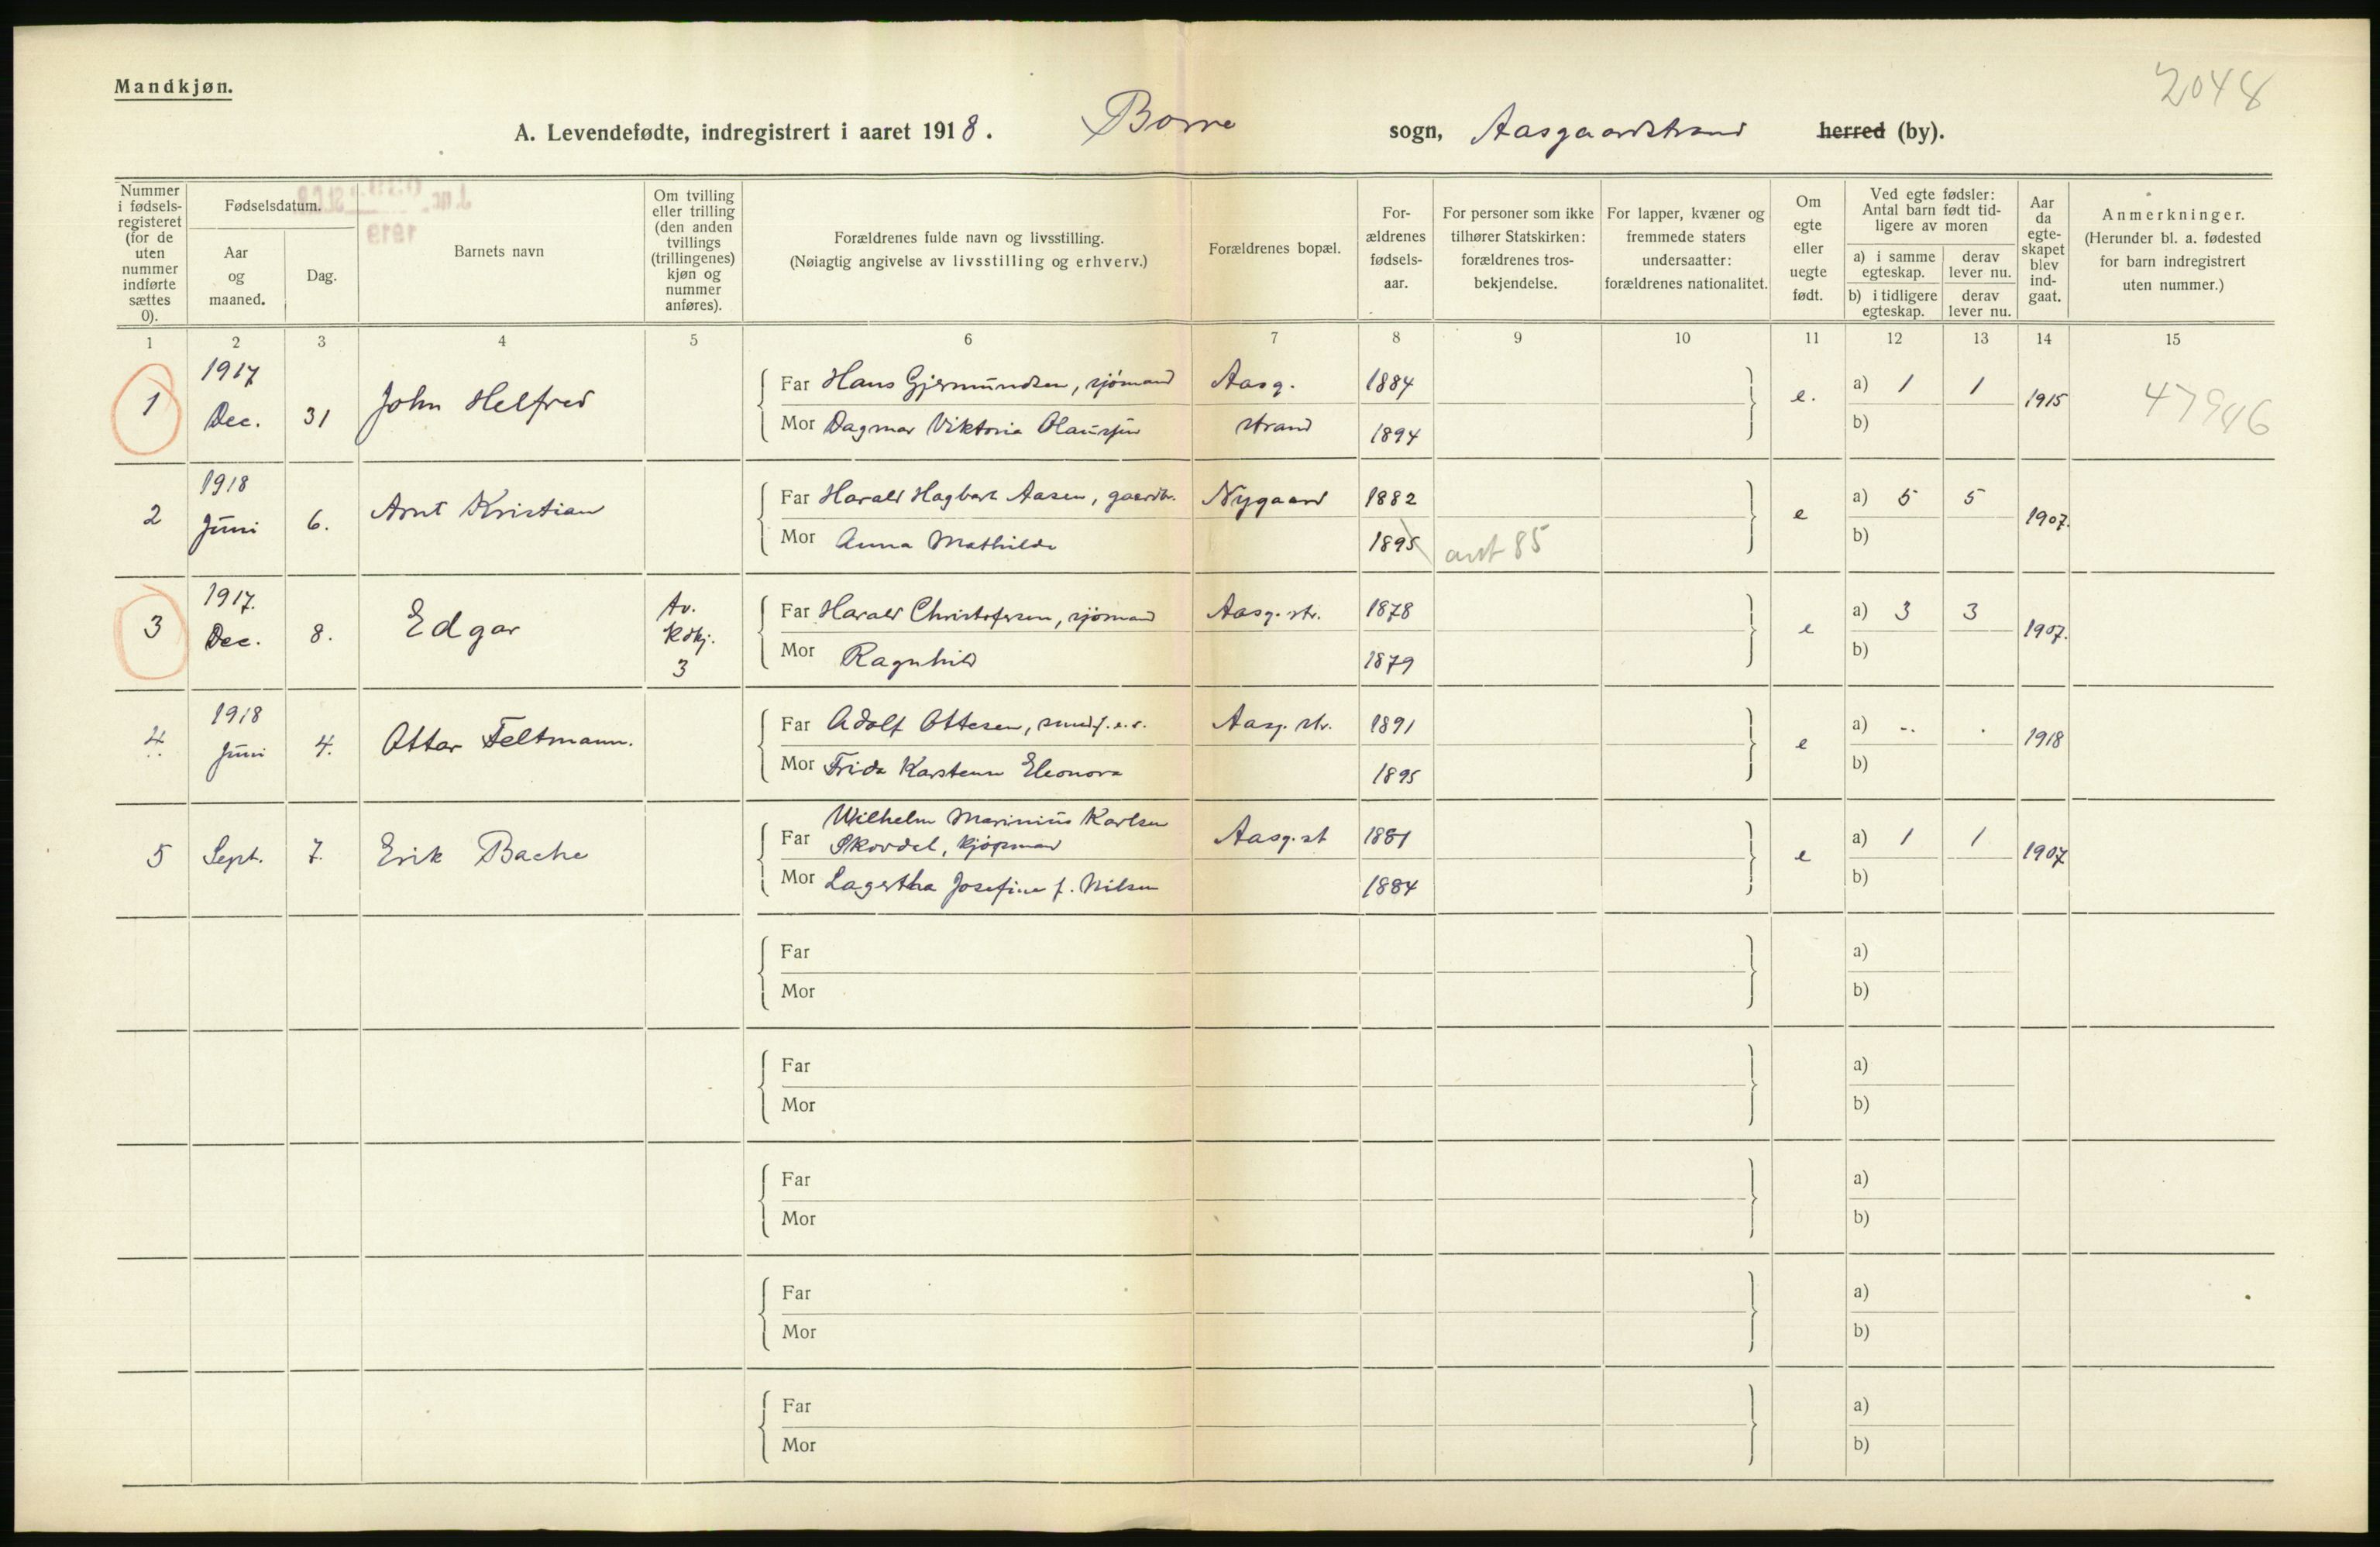 Mandkjøn.
2048
A. Levendefødte, indregistrert i aaret 1918. Borre sogn, Aasgaardstrand herred (by).
Nummer i fødsels-registeret (for de uten nummer indførte sættes 0).
Fødselsdatum.
Aar og maaned.
Dag.
Barnets navn
Om tvilling eller trilling (den anden tvillings (trillingenes) kjøn og nummer anføres).
Forældrenes fulde navn og livsstilling.
(Nøiagtig angivelse av livsstilling og erhverv.)
Forældrenes bopæl.
For-ældrenes fødsels-aar.
For personer som ikke tilhører Statskirken: forældrenes tros-bekjendelse.
For lapper, kvæner og fremmede staters undersaatter: forældrenes nationalitet.
Om egte eller uegte født.
Ved egte fødsler: Antal barn født tid-ligere av moren
a) i samme egteskap.
derav lever nu.
b) i tidligere egteskap.
derav lever nu.
Aar da egte-skapet blev ind-gaat.
Anmerkninger.
(Herunder bl. a. fødested for barn indregistrert uten nummer.)
1 2 3 4 5 6 7 8 9 10 11 12 13 14 15
1 1917 Dec. 31 John Helfred
Far Hans Gjermundsen, sjømand Aasg. 1884
Mor Dagmar Viktoria Olaussen strand 1894
e. a) 1 1 1915 47946
b)
2 1918 Juni 6. Arnt Kristian
Far Harald Hagbart Aasen, gaardbr. Nygaard 1882
Mor Anna Mathilde 1895 ant 85
e a) 5 5 1907.
b)
3 1917. Dec. 8. Edgar Tv. Kdkj. 3
Far Harald Christofersen, sjømand Aasg. str. 1878
Mor Ragnhild 1879
e a) 3 3 1907.
b)
4. 1918 Juni 4. Ottar Feltmann.
Far Adolf Ottesen, Aasg. str. 1891
Mor Frida Karstenn Eleonora 1895
e a) - . 1918
b)
5 Sept. 7. Erik Bache
Wilhelm Marinius Karlsen
Far Skovdal, kjøpmand Aasg. st 1881
Mor Lagertha Josefine f. Nilsen 1884
e a) 1 1 1907
b)
Far a)
Mor b)
Far a)
Mor b)
Far a)
Mor b)
Far a)
Mor b)
Far a)
Mor b)